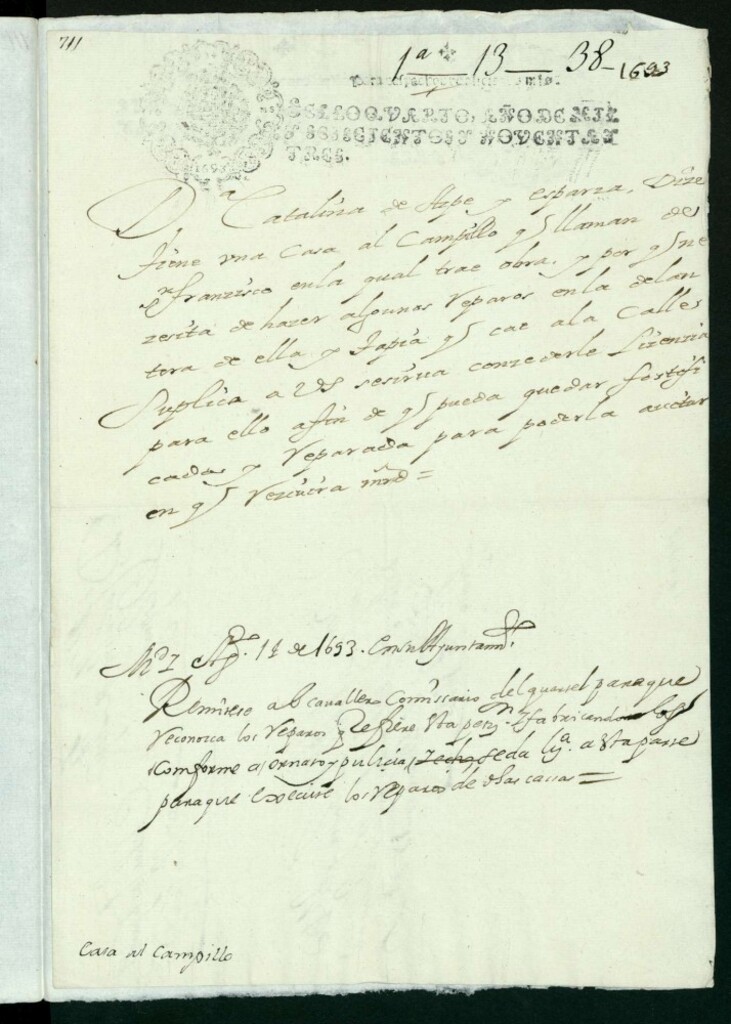 711
1ª 13 38 1693
SELLO QVARTO, AÑO DE MIL
Y SEISCIENTOS Y NOVENTA Y
TRES.
1693
Dª Catalina de Azpe y esparza, Dize
tiene vna Casa al Campillo q llaman de S
franzisco en la qual trae obra, y por q ne
zesita de hazer algunos reparos en la delan
tera de ella y tapia q cae a la Calle
Suplica a VS se sirva conzederle lizenzia
para ello a fin de q pueda quedar fortifi
cada y reparada para poderla
en q rezivira mrd =
Md Agto 14 de 1693. En su Ayuntamto
Remitese al cavallero Comissario del quartel para que
reconozca los reparos q Refiere esta petn y fabricando
conforme a ornato y pulizia se da lizª a esta parte
para que execute los reparos de dhas cassas =
Casa al Campillo